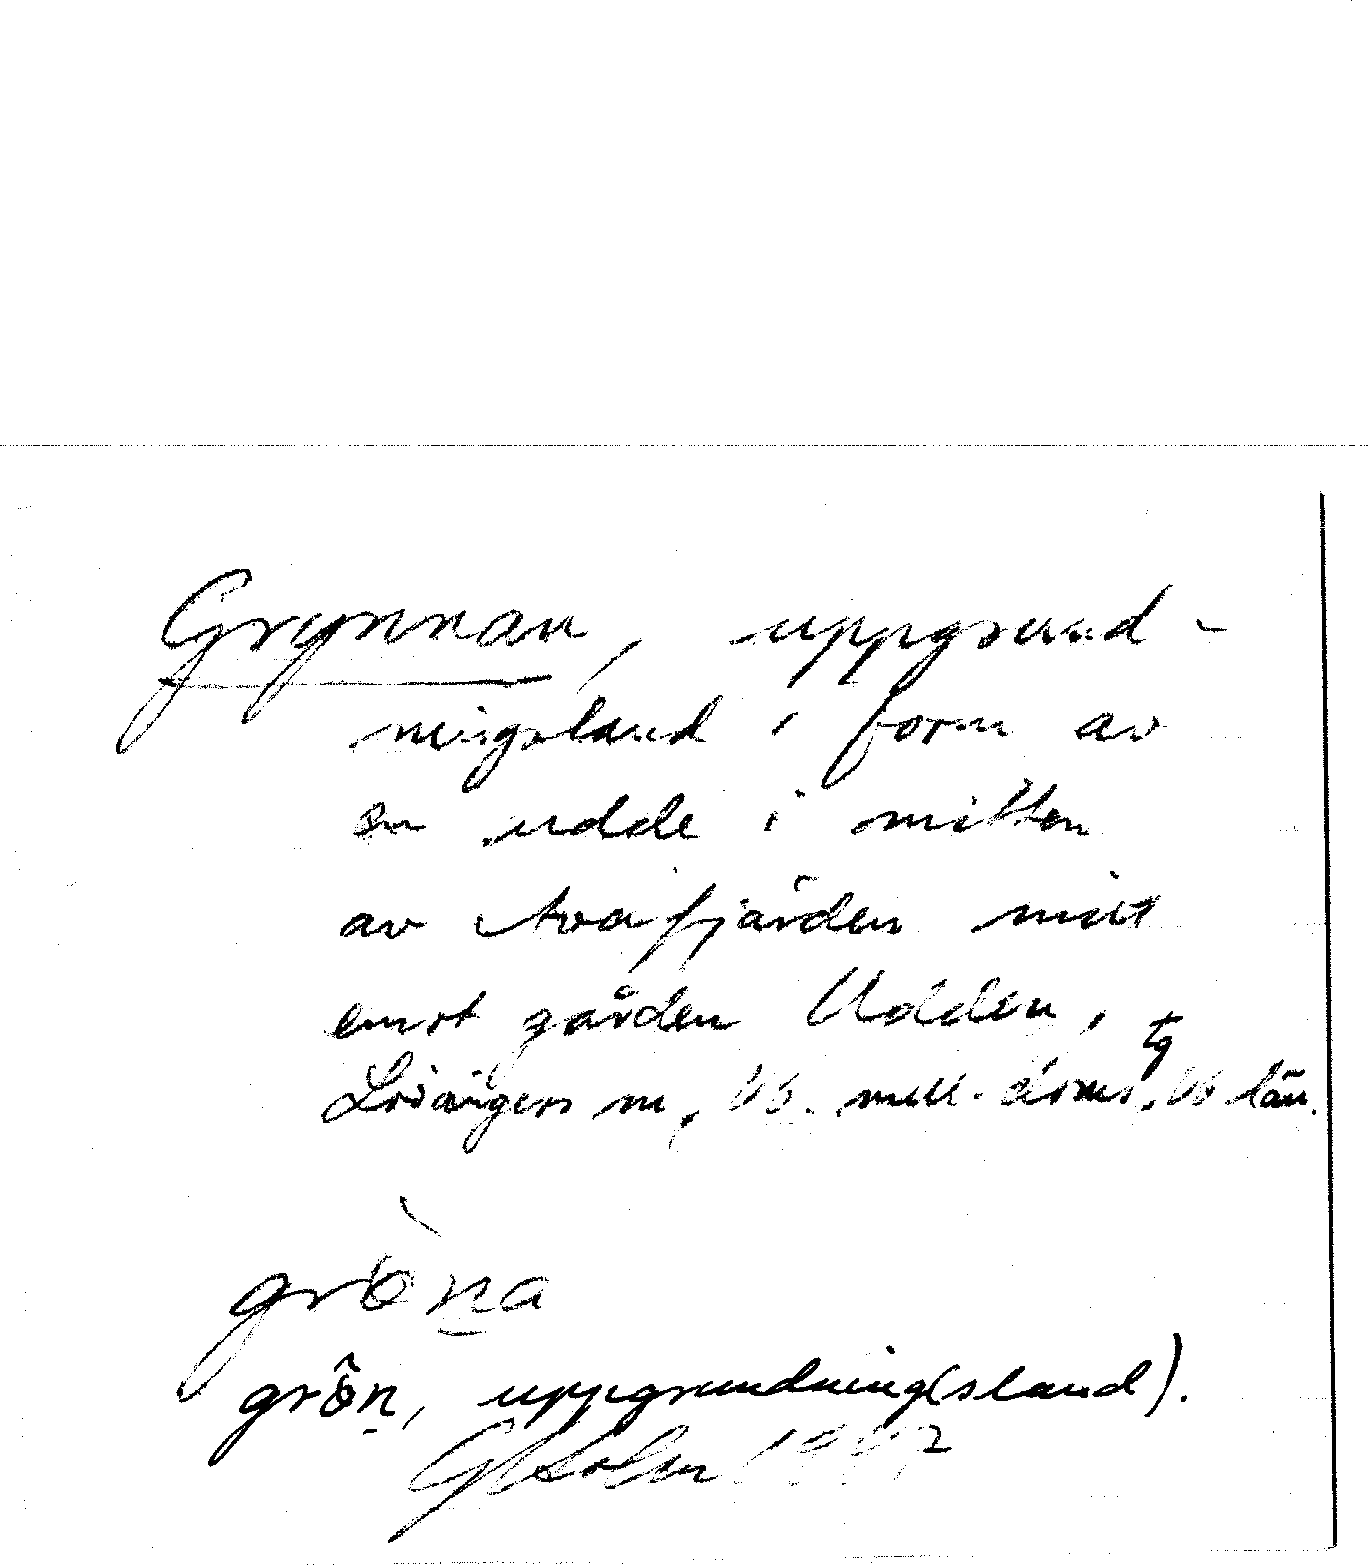 Grynnan, uppgrund-
ningsland i form av
en udde i mitten
av Avafjärden mitt
emot gården Udden,
Lövångers sn, Vb. mell. doms.tg, Vb län.
gròna
grôn, uppgrundning(sland).
1947